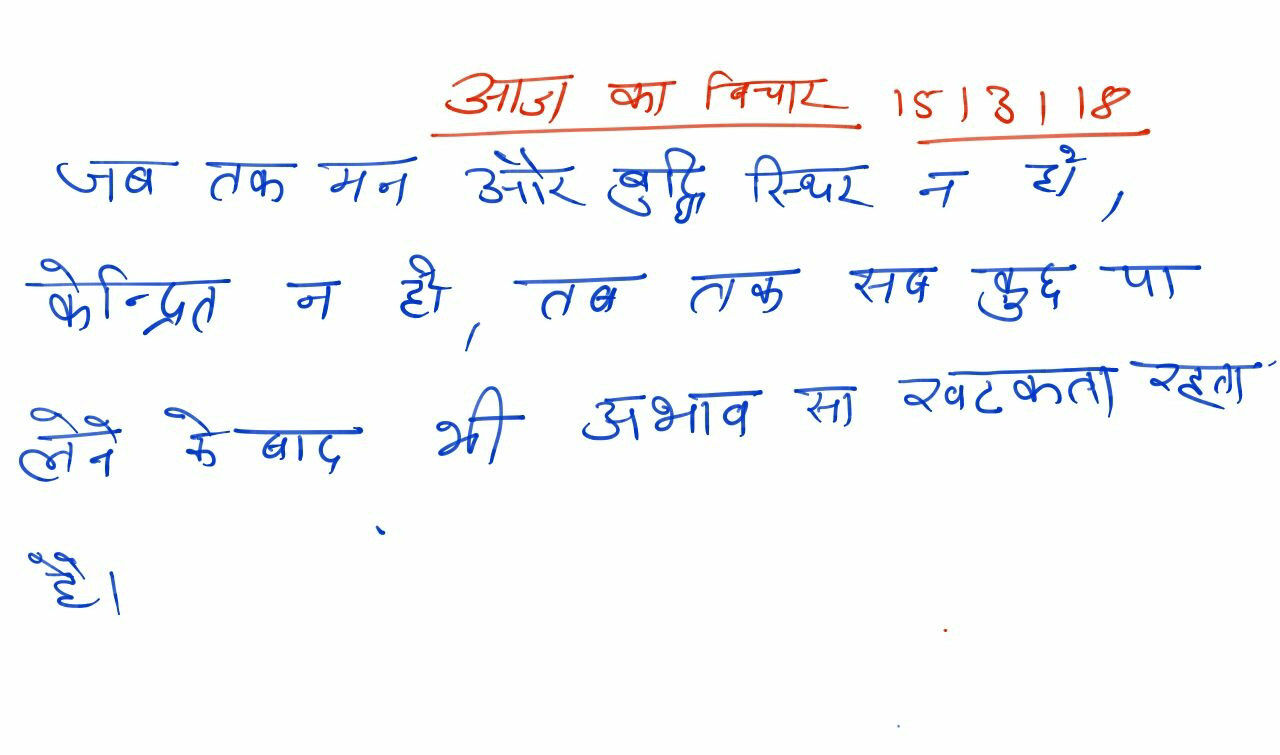 आज का विचार 15/3/18
जब तक मन और बुद्धि स्थिर न हो,
केन्द्रित न हो, तब तक सब कुछ पा
लेने के बाद भी अभाव सा खटकता रहता
है।